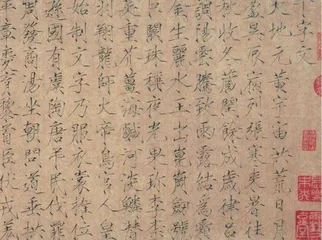 千字文
天地元黃宇宙洪荒日月
盈昃辰宿列張寒來暑往
秋收冬藏閏餘成歲律呂
調陽雲騰致雨露結為霜
金生麗水玉出崑岡劍號
巨闕珠稱夜光果珍李柰
菜重芥薑海鹹河淡鱗潛
羽翔龍師火帝鳥官人皇
始制文字乃服衣裳推位
遜國有虞陶唐弔民伐罪
周發商湯坐朝問道垂拱
平章愛育黎首臣伏戎羌